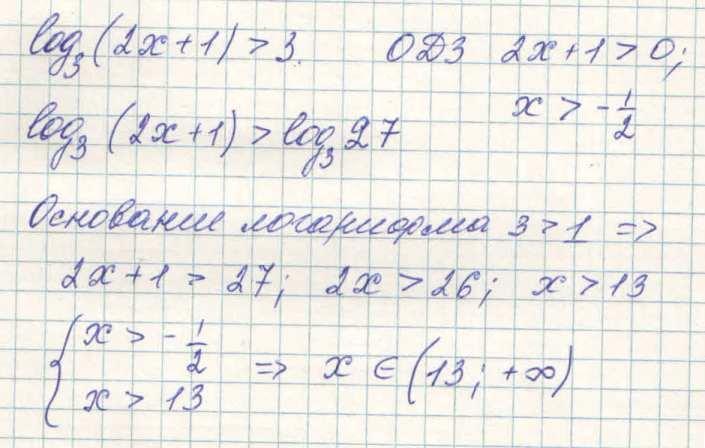 log₃(2x+1) > 3. ОДЗ 2x+1 > 0;
x > -1/2
log₃(2x+1) > log₃27
Основание логарифма 3 > 1 =>
2x+1 > 27; 2x > 26; x > 13
{ x > -1/2
x > 13 => x ∈ (13; +∞)